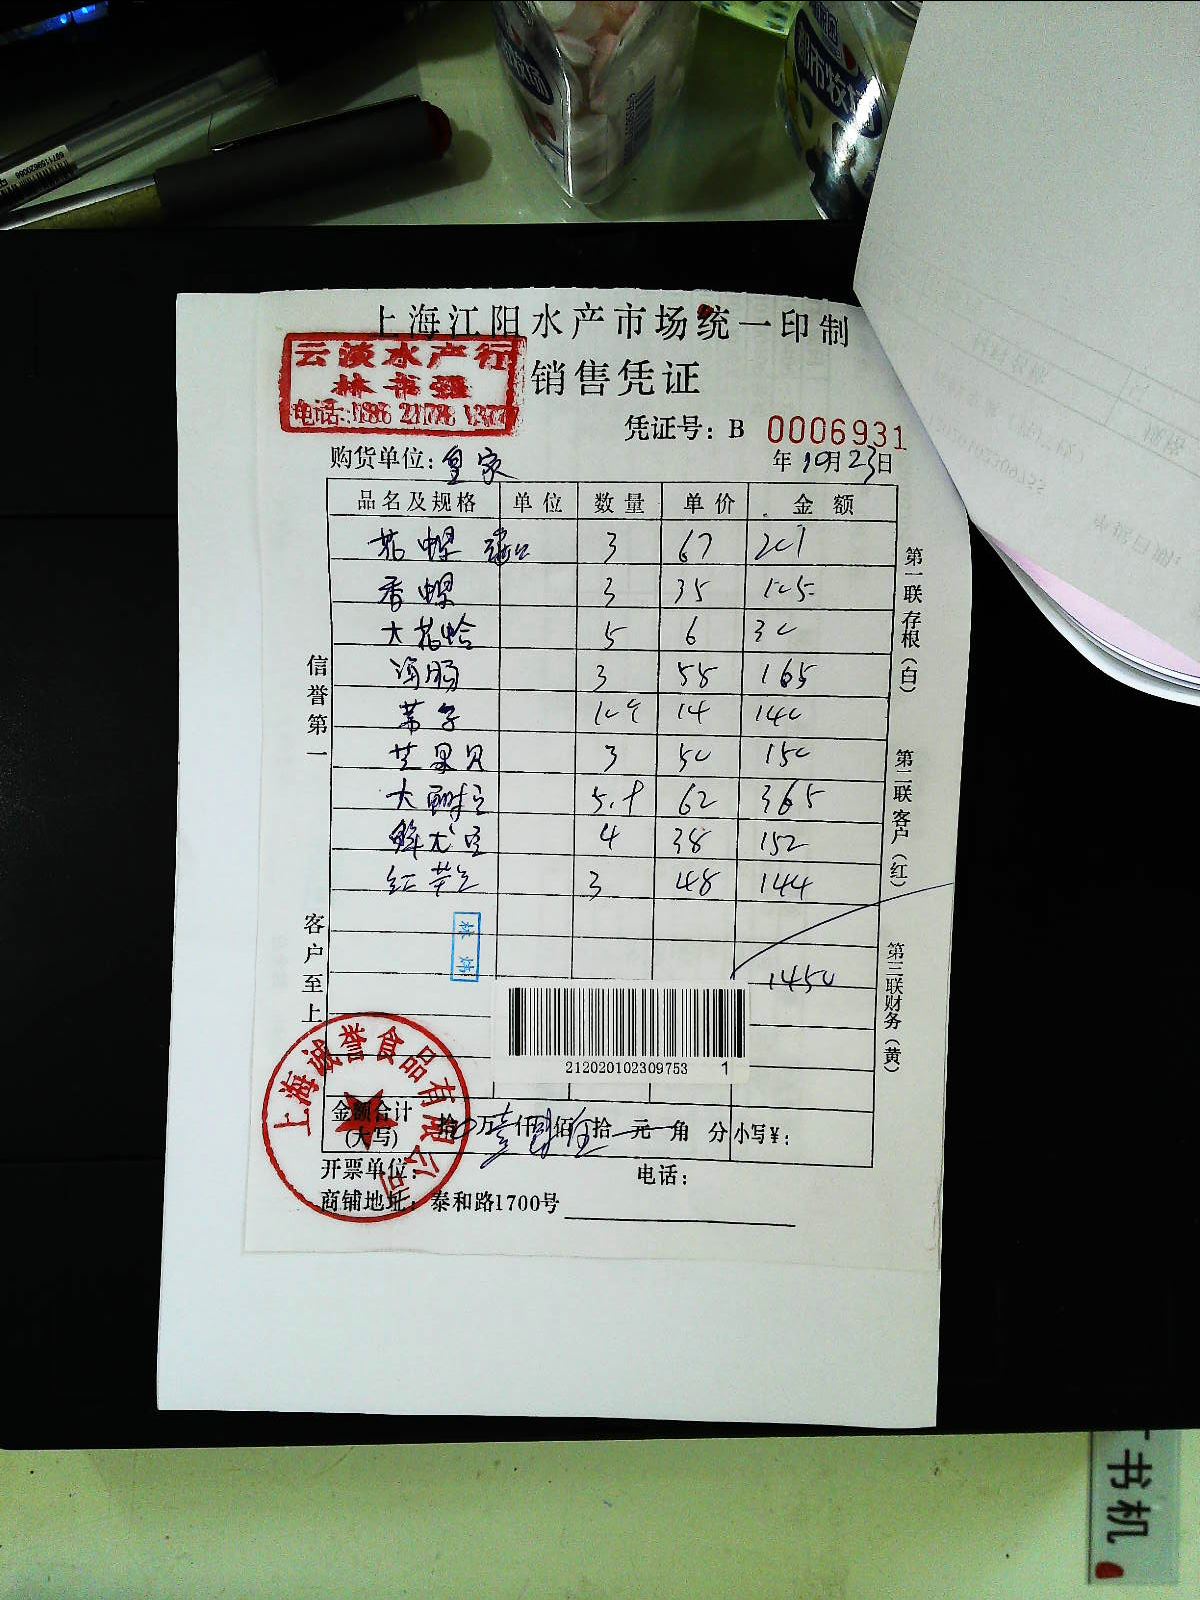 上海江阳水产市场统一印制
云淡水产行
林书强
销售凭证
凭证号：B 0006931
购货单位：皇家
年10月23日
品名及规格 单位 数量 单价 金额
花螺 3 67 201
香螺 3 35 105
大花蛤 5 6 30
海肠 3 55 165
带子 10个 14 140
芒果贝 3 50 150
5.9 62 365
4 38 152
3 48 144
1450
信誉第一
客户至上
第一联存根（白）
第二联客户（红）
第三联财务（黄）
212020102309753 1
上海诚誉食品有限公司
金额合计
(大写)
拾万壹仟肆佰伍拾元角分 小写¥：
开票单位：
电话：
商铺地址：泰和路1700号
书机